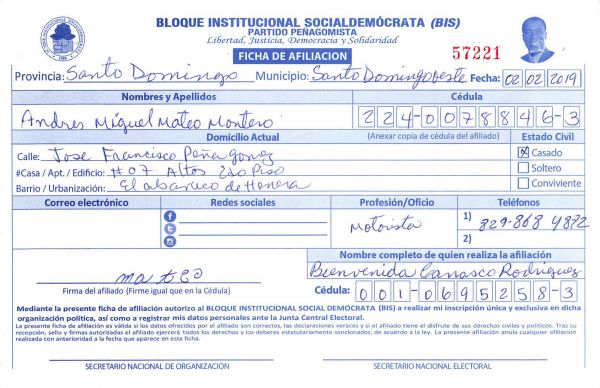 BLOQUE INSTITUCIONAL SOCIALDEMÓCRATA (BIS)
PARTIDO PEÑAGOMISTA
Libertad, Justicia, Democracia y Solidaridad
FICHA DE AFILIACION
57221
Provincia: Santo Domingo Municipio: Santo Domingo oeste Fecha: 02 02 2019
Nombres y Apellidos
Cédula
Andres Miguel Mateo Montero
224-0078846-3
Domicilio Actual
(Anexar copia de cédula del afiliado)
Estado Civil
Calle: Jose Francisco Peña gomez
Casado
#Casa / Apt. / Edificio: #07 Altos 2do Piso
Soltero
Barrio / Urbanización: El abanico de Herrera
Conviviente
Correo electrónico
Redes sociales
Profesión/Oficio
Teléfonos
Motorista
1) 829-868 4872
2)
Nombre completo de quien realiza la afiliación
mateo
Bienvenida Carrasco Rodriguez
Firma del afiliado (Firme igual que en la Cédula)
Cédula: 001-0695258-3
Mediante la presente ficha de afiliación autorizo al BLOQUE INSTITUCIONAL SOCIAL DEMÓCRATA (BIS) a realizar mi inscripción única y exclusiva en dicha
organización política, así como a registrar mis datos personales ante la Junta Central Electoral.
La presente ficha de afiliación es válida si los datos ofrecidos por el afiliado son correctos, las declaraciones veraces y si el afiliado tiene el disfrute de sus derechos civiles y políticos. Tras su
recepción, sello y firmas autorizadas el afiliado ejercerá todos los derechos y los deberes estatutariamente sancionados, de acuerdo a la ley. La presente afiliación anula cualquier afiliación
realizada con anterioridad a la fecha que aparece en esta ficha.
SECRETARIO NACIONAL DE ORGANIZACIÓN
SECRETARIO NACIONAL ELECTORAL